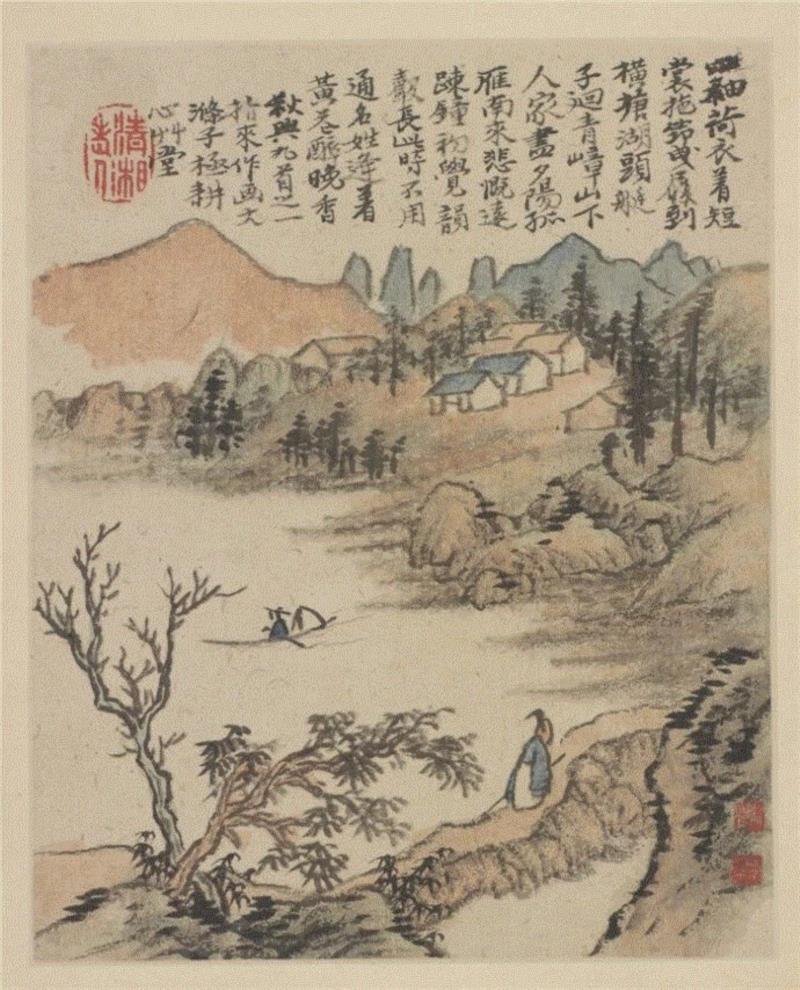 袖荷衣着短
裳拖筇曳履到
橫塘湖頭艇
子迴青嶂山下
人家盡夕陽孤
雁南來悲慨遠
疎鐘初覺韻
聲長此時不用
通名姓逢着
黃花醉晚香
秋興九首之一
拈來作画大
滌子極耕
心艸堂
清湘老人